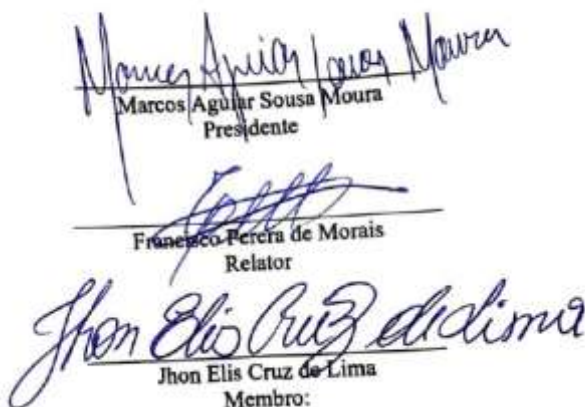 Marcos Aguiar Sousa Moura
Marcos Aguiar Sousa Moura
Presidente
Francisco Perera de Morais
Relator
Jhon Elis Cruz de Lima
Jhon Elis Cruz de Lima
Membro: